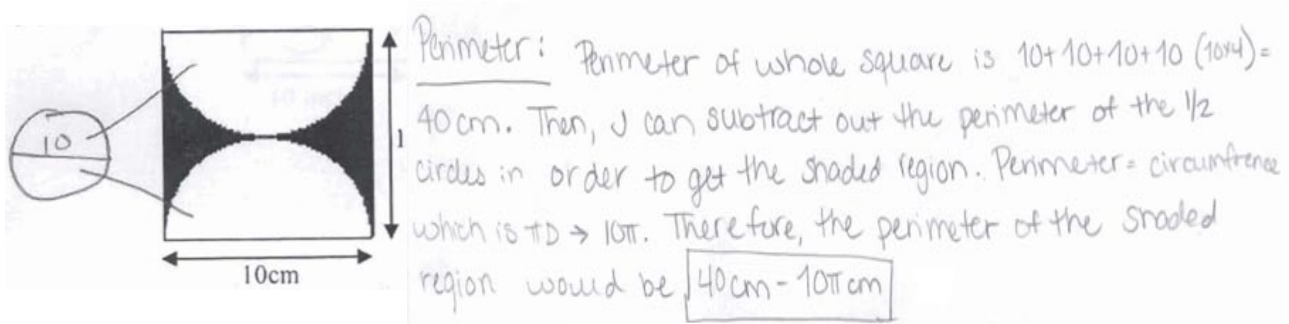 10
1
10cm
Perimeter: Perimeter of whole square is 10+10+10+10 (10x4)=
40cm. Then, I can subtract out the perimeter of the 1/2
circles in order to get the shaded region. Perimeter= circumfrence
which is πD → 10π. Therefore, the perimeter of the shaded
region would be 40cm - 10π cm